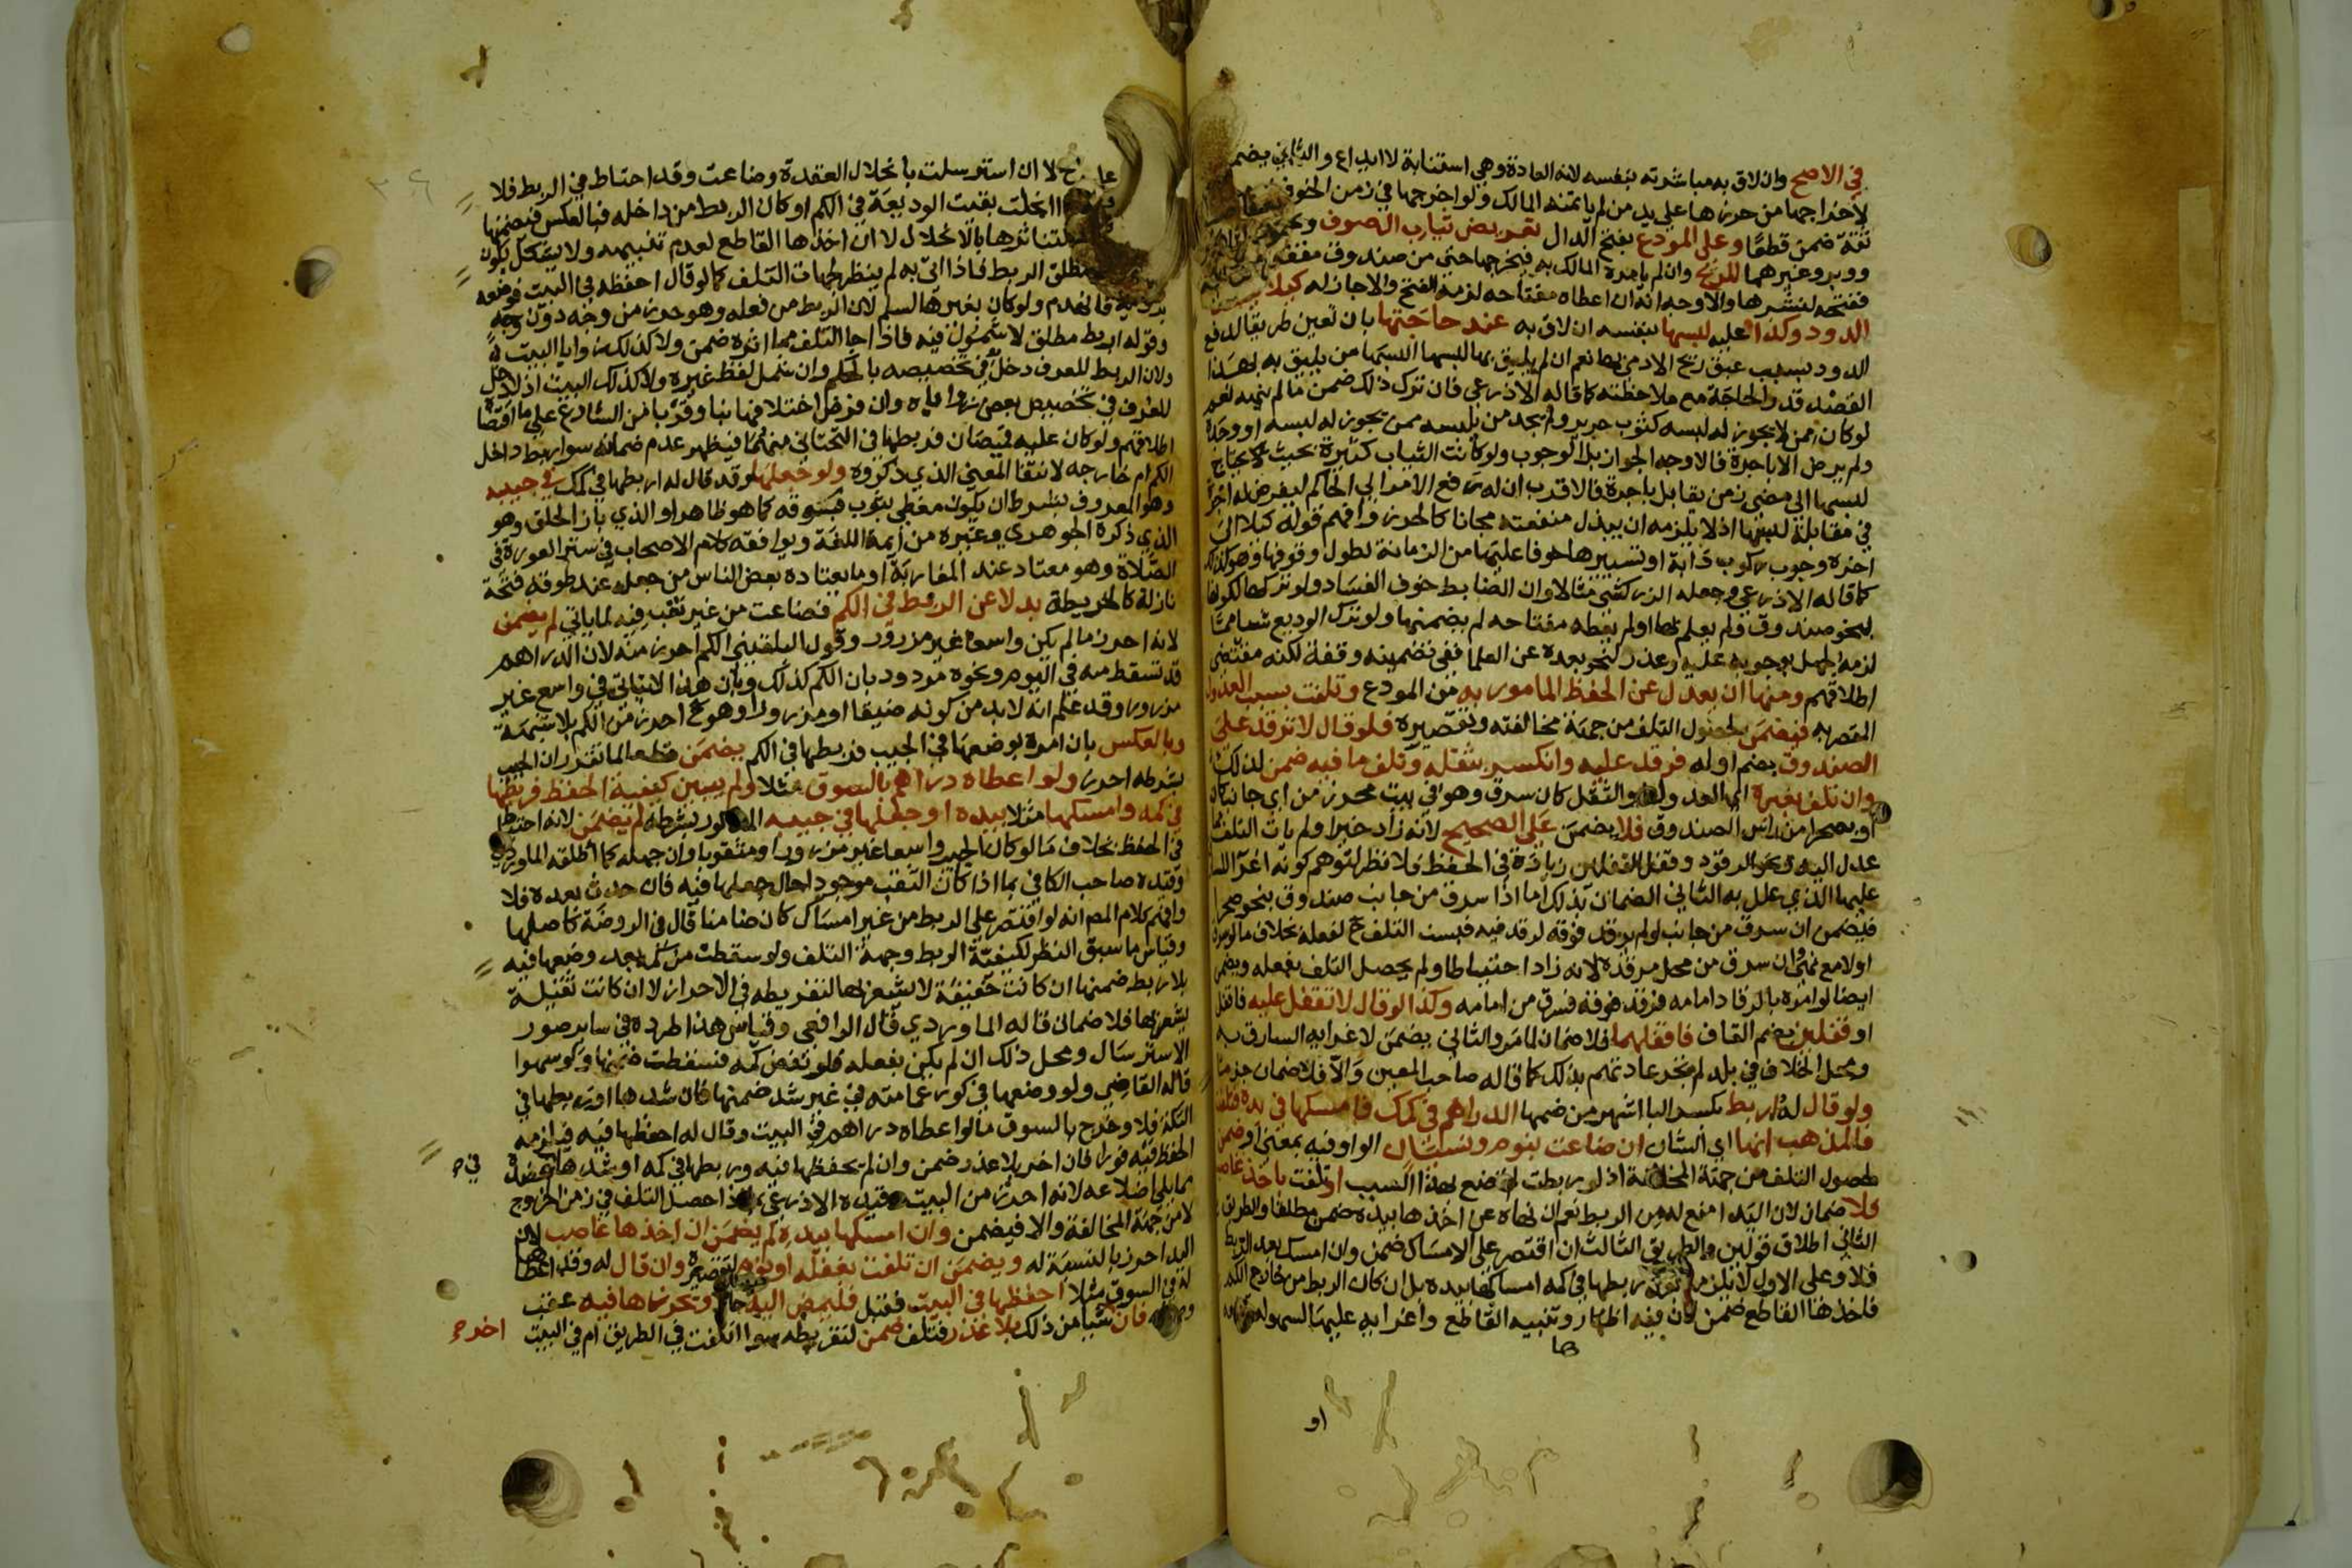 في الاصح وان لاق به مباشرته بنفسه لانه العادة وهي استنابة لا ايداع والثاني يضمن
لاخراجها من حرزها على يد من لم ياتمنه المالك ولو اخرجها في زمن الخوف
ثقة ضمن قطعا وعلى المودع بفتح الدال تعريض ثياب الصوف
ووبر وغيرهما للريح وان لم يامره المالك به فيخرجها حتى من صندوق مقفل
ففتحه لنشرها والاوجه انه ان اعطاه مفتاحه لزمه الفتح والا جاز له كيلا
الدود وكذا عليه لبسها بنفسه ان لاق به عند حاجتها بان تعين طريقا لدفع
الدود بسبب عبق ريح الادمي بها نعم ان لم يليق بها لبسها البسها من يليق به بهذا
القصد قدر الحاجة مع ملاحظته كما قاله الاذرعي فان ترك ذلك ضمن ما لم ينهه نعم
لو كان ممن لا يجوز له لبسه كثوب حرير ولم يجد من يلبسه ممن يجوز له لبسه او وجده
ولم يرض الا باجرة فالاوجه الجواز بل الوجوب ولو كانت الثياب كثيرة بحيث يحتاج
لبسها الى مضي زمن يقابل باجرة فالاقرب ان له رفع الامر الى الحاكم ليفرض له اجرة
في مقابلة لبسها اذ لا يلزمه ان يبذل منفعته مجانا كالحرز وافهم قوله كيلا الى
اخره وجوب ركوب دابة او تسييرها خوفا عليها من الزمانة لطول وقوفها وهو كذلك
كما قاله الاذرعي وجعله الزركشي مثالا وان الضابط خوف الفساد ولو تركها لكونها
بنحو صندوق ولم يعلم بها او لم يعطه مفتاحه لم يضمنها ولو ترك الوديع شيا مما
لزمه لجهل بوجوبه عليه وعذر لنحو بعده عن العلما ففي تضمينه وقفة لكنه مقتضى
اطلاقهم ومنها ان يعدل عن الحفظ المامور به من المودع وتلفت بسبب العدول
المقصر به فيضمن لحصول التلف من جهة مخالفته وتقصيره فلو قال لا ترقد على
الصندوق بضم اوله فرقد عليه وانكسر بثقله وتلف ما فيه ضمن لذلك
وان تلف بغيره اي العدول والثقل كان سرق وهو في بيت محرز من اي جانب كان
او بصحرا من راس الصندوق فلا يضمن على الصحيح لانه زاد خيرا ولم يات التلف مما
عدل اليه ونحو الرقود وقفل القفلين زيادة في الحفظ فلا نظر لتوهم كونه اغرا اللص
عليها الذي علل به الثاني الضمان بذلك اما اذا سرق من جانب صندوق بنحو صحرا
فيضمن ان سرق من جانب لو لم يرقد فوقه لرقد فيه فيسند التلف ح لفعله بخلاف ما لو مر
او لا مع نهي وان سرق من محل مرقده لانه زاد احتياطا ولم يحصل التلف بفعله ويضمن
ايضا لو امره بالرقاد امامه فرقد فوقه فسرق من امامه وكذا لو قال لا تقفل عليه فاقفل
او قفلين بضم القاف فاقفلهما فلا ضمان لما مر والثاني يضمن لاغرايه السارق به
ومحل الخلاف في بلد لم تجر عادتهم بذلك كما قاله صاحب المعين والا فلا ضمان جزما
ولو قال له اربط بكسر البا اشهر من ضمها الدراهم في كمك فامسكها في يده فتلفت
فالمذهب انها اي الشان ان ضاعت بنوم ونسيان الواو فيه بمعنى او ضمن
لحصول التلف من جهة المخالفة اذ لو ربطت لم تضع بهذا السبب او تلفت باخذ غاصب
فلا ضمان لان اليد امنع له من الربط نعم ان نهاه عن اخذها بيده ضمن مطلقا والطريق
الثاني اطلاق قولين والطريق الثالث ان اقتصر على الامساك ضمن وان امسك بعد الربط
فلا وعلى الاول لا يلزمه ربطها في كمه امساكها بيده بل ان كان الربط من خارج الكم
فاخذها القاطع ضمن لان فيه اظهار وتنبيه القاطع واغرايه عليها لسهولة
ها
او
لا ان استرسلت بانحلال العقدة وضاعت وقد احتاط في الربط فلا
انحلت بقيت الوديعة في الكم او كان الربط من داخله فبالعكس فيضمنها
لتناثرها بالانحلال لا ان اخذها القاطع لعدم تنبيهه ولا يشكل بكون
مطلق الربط فاذا اتى به لم ينظر لجهات التلف كما لو قال احفظه في البيت فوضعه
فانهدم ولو كان بغيرها لسلم لان الربط من فعله وهو حرز من وجه دون وجه
وقوله اربط مطلق لا شمول فيه فاذا جا التلف مما اثره ضمن ولا كذلك زوايا البيت
ولان الربط للعرف دخل في تخصيصه بالمحكم وان شمل لفظ غيره ولا كذلك البيت اذ لا دخل
للعرف في تخصيص بعض زواياه وان فرض اختلافها بنا وقربا من الشارع على ما اقتضاه
اطلاقهم ولو كان عليه قميصان فربطها في التحتاني منهما فيظهر عدم ضمانه سوا ربط داخل
الكم ام خارجه لانتفا المعنى الذي ذكروه ولو جعلها وقد قال له اربطها في كمك في جيبه
وهو المعروف بشرط ان يكون مغطى بثوب فوقه كما هو ظاهر او الذي بازا الحلق وهو
الذي ذكره الجوهري وغيره من ايمة اللغة ويوافقه كلام الاصحاب في ستر العورة في
الصلاة وهو معتاد عند المغاربة او ما يعتاده بعض الناس من جعله عند طوقه فتحة
نازلة كالخريطة بدلا عن الربط في الكم فضاعت من غير ثقب فيه لما ياتي لم يضمن
لانه احرز ما لم يكن واسعا غير مزرور وقول البلقيني الكم احرز منه لان الدراهم
قد تسقط منه في النوم ونحوه مردود بان الكم كذلك وبان هذا لا يتاتى في واسع غير
مزرور وقد علم انه لا بد من كونه ضيقا او مزرورا وهو ح احرز من الكم بلا شبهة
وبالعكس بان امره بوضعها في الجيب فربطها في الكم يضمن قطعا لما تقرر ان الجيب
بشرطه احرز ولو اعطاه دراهم بالسوق مثلا ولم يبين كيفية الحفظ فربطها
في كمه وامسكها مثلا بيده او جعلها في جيبه المذكور بشرطه لم يضمن لانه احتاط
في الحفظ بخلاف ما لو كان الجيب واسعا غير مزرور او مثقوبا وان جهله كما اطلقه الماوردي
وقيده صاحب الكافي بما اذا كان الثقب موجودا حال جعلها فيه فان حدث بعده فلا
وافهم كلام المص انه لو اقتصر على الربط من غير امساك كان ضامنا قال في الروضة كاصلها
وقياس ما سبق النظر لكيفية الربط وجهة التلف ولو سقطت من كمه بعد وضعها فيه
بلا ربط ضمنها ان كانت خفيفة لا يشعر بها لتفريطه في الاحراز لا ان كانت ثقيلة
يشعر بها فلا ضمان قاله الماوردي قال الرافعي وقياس هذا طرده في ساير صور
الاسترسال ومحل ذلك ان لم يكن بفعله فلو نفض كمه فسقطت ضمنها ولو سهوا
قاله القاضي ولو وضعها في كور عمامته من غير شد ضمنها فان شدها او ربطها في
التكة فلا وخرج بالسوق ما لو اعطاه دراهم في البيت وقال له احفظها فيه فيلزمه
الحفظ فيه فورا فان اخر بلا عذر ضمن وان لم يحفظها فيه وربطها في كمه او شدها في عضده
مما يلي اضلاعه لانه احرز من البيت وقيده الاذرعي بما اذا حصل التلف في زمن الخروج
لا من جهة المخالفة والا فيضمن وان امسكها بيده لم يضمن ان اخذها غاصب لان
اليد احرز بالنسبة له ويضمن ان تلفت بغفلة او نوم لتقصيره وان قال له وقد اعطاها
له في السوق مثلا احفظها في البيت فقبل فليمض اليه حالا ويحرزها فيه عقب
فان شيا من ذلك بلا عذر فتلف ضمن لتفريطه سوا اتلفت في الطريق ام في البيت
اخر